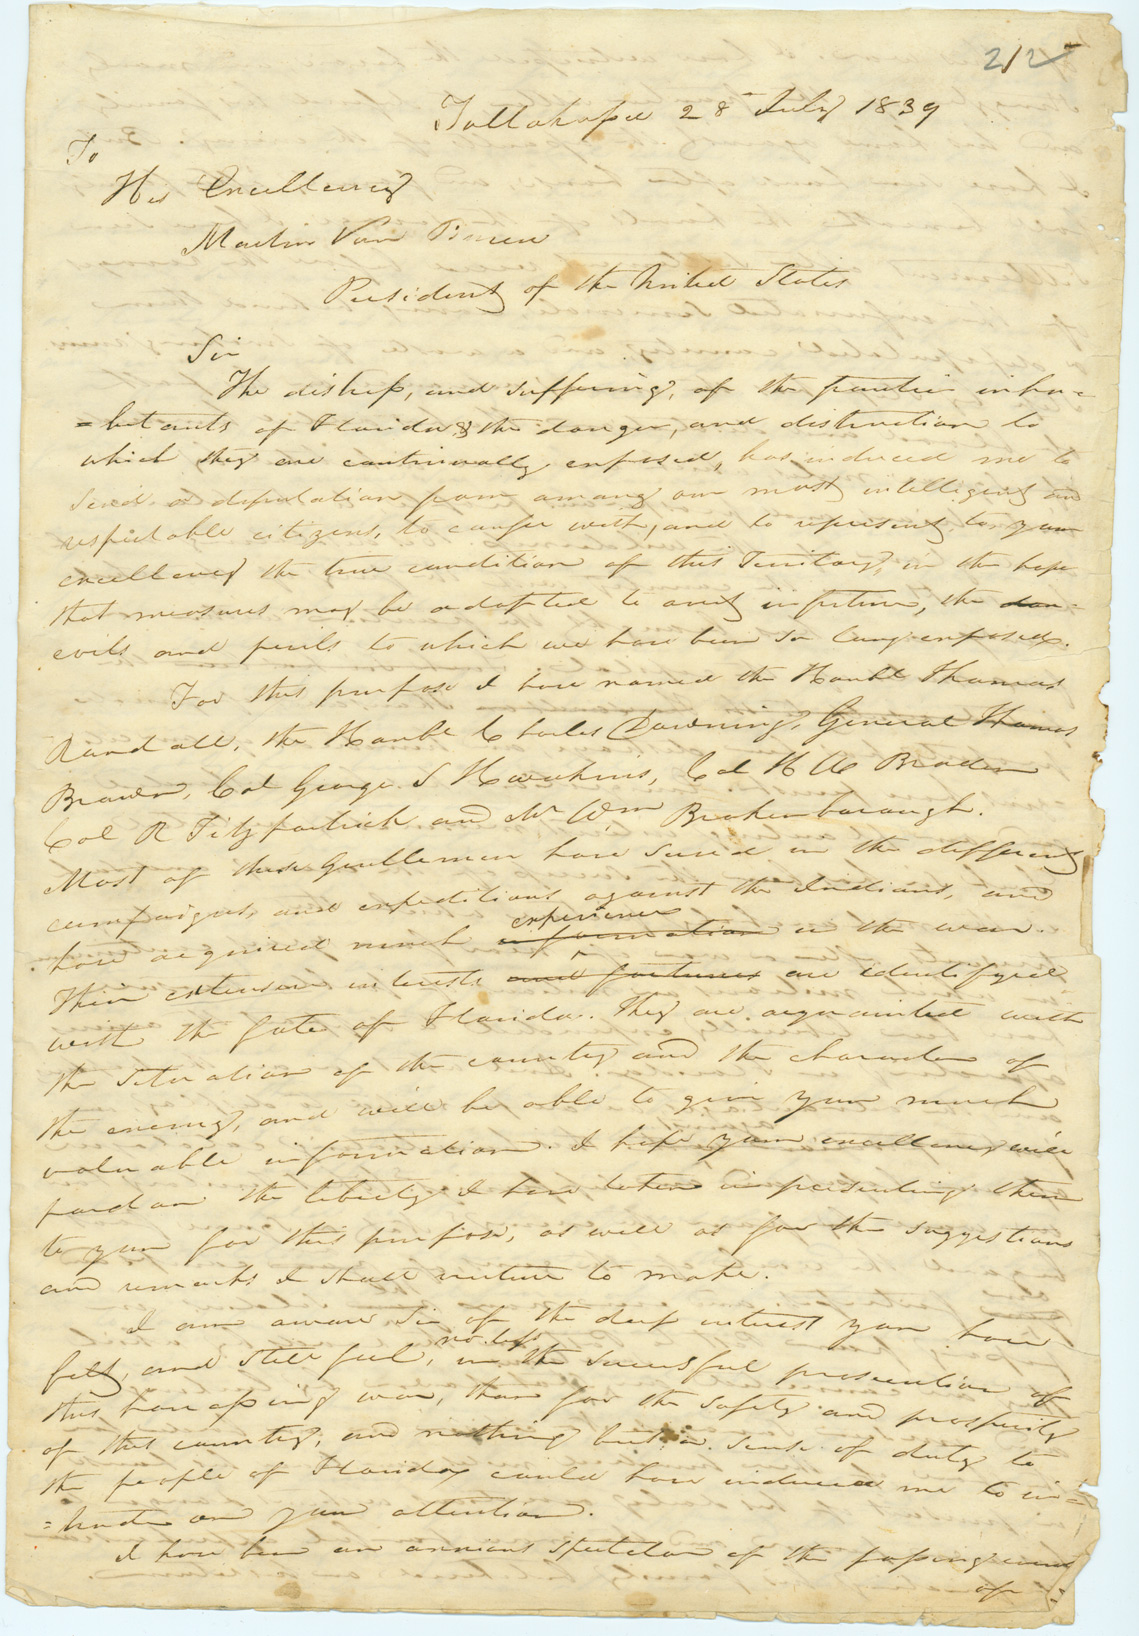 212
Tallahassee 28 July 1839
To
His Excellency
Martin Van Buren
President of the United States
Sir
The distress, and suffering, of the frontier inha=
=bitants of Florida & the danger, and distruction to
which they are continually exposed, has induced me to
send a deputation from among our most intelligent and
respectable citizens, to confer with, and to represent to your
excellency the true condition of this Territory, in the hope
that measures may be adopted to avert in future, the
evils and perils to which we have been so long exposed.
For this purpose I have named the Honble Thomas
Randall, the Honble Charles Downing, General Thomas
Brown, Col George S Hawkins, Col H A Braden
Col R Fitzpatrick and Mr Wm Brokenborough.
Most of these Gentlemen have served in the different
campaigns, and expeditions against the Indians, and
experience
have acquired much information in the war.
Their extensive interests and fortunes are identifyed
with the fate of Florida. They are acquainted with
the situation of the country and the character of
the enemy, and will be able to give you much
valuable information. I hope your excellency will
pardon the liberty I have taken in presenting them
to you for this purpose, as well as for the suggestions
and remarks I shall venture to make.
I am aware Sir of the deep interest you have
no less
felt, and still feel, in the sucessful prosecution of
this harrassing war, than for the safety and prosperity
of this country, and nothing but a sense of duty to
the people of Florida could have induced me to in=
=trude on your attention.
I have been an anxious spectator of the passing events
of